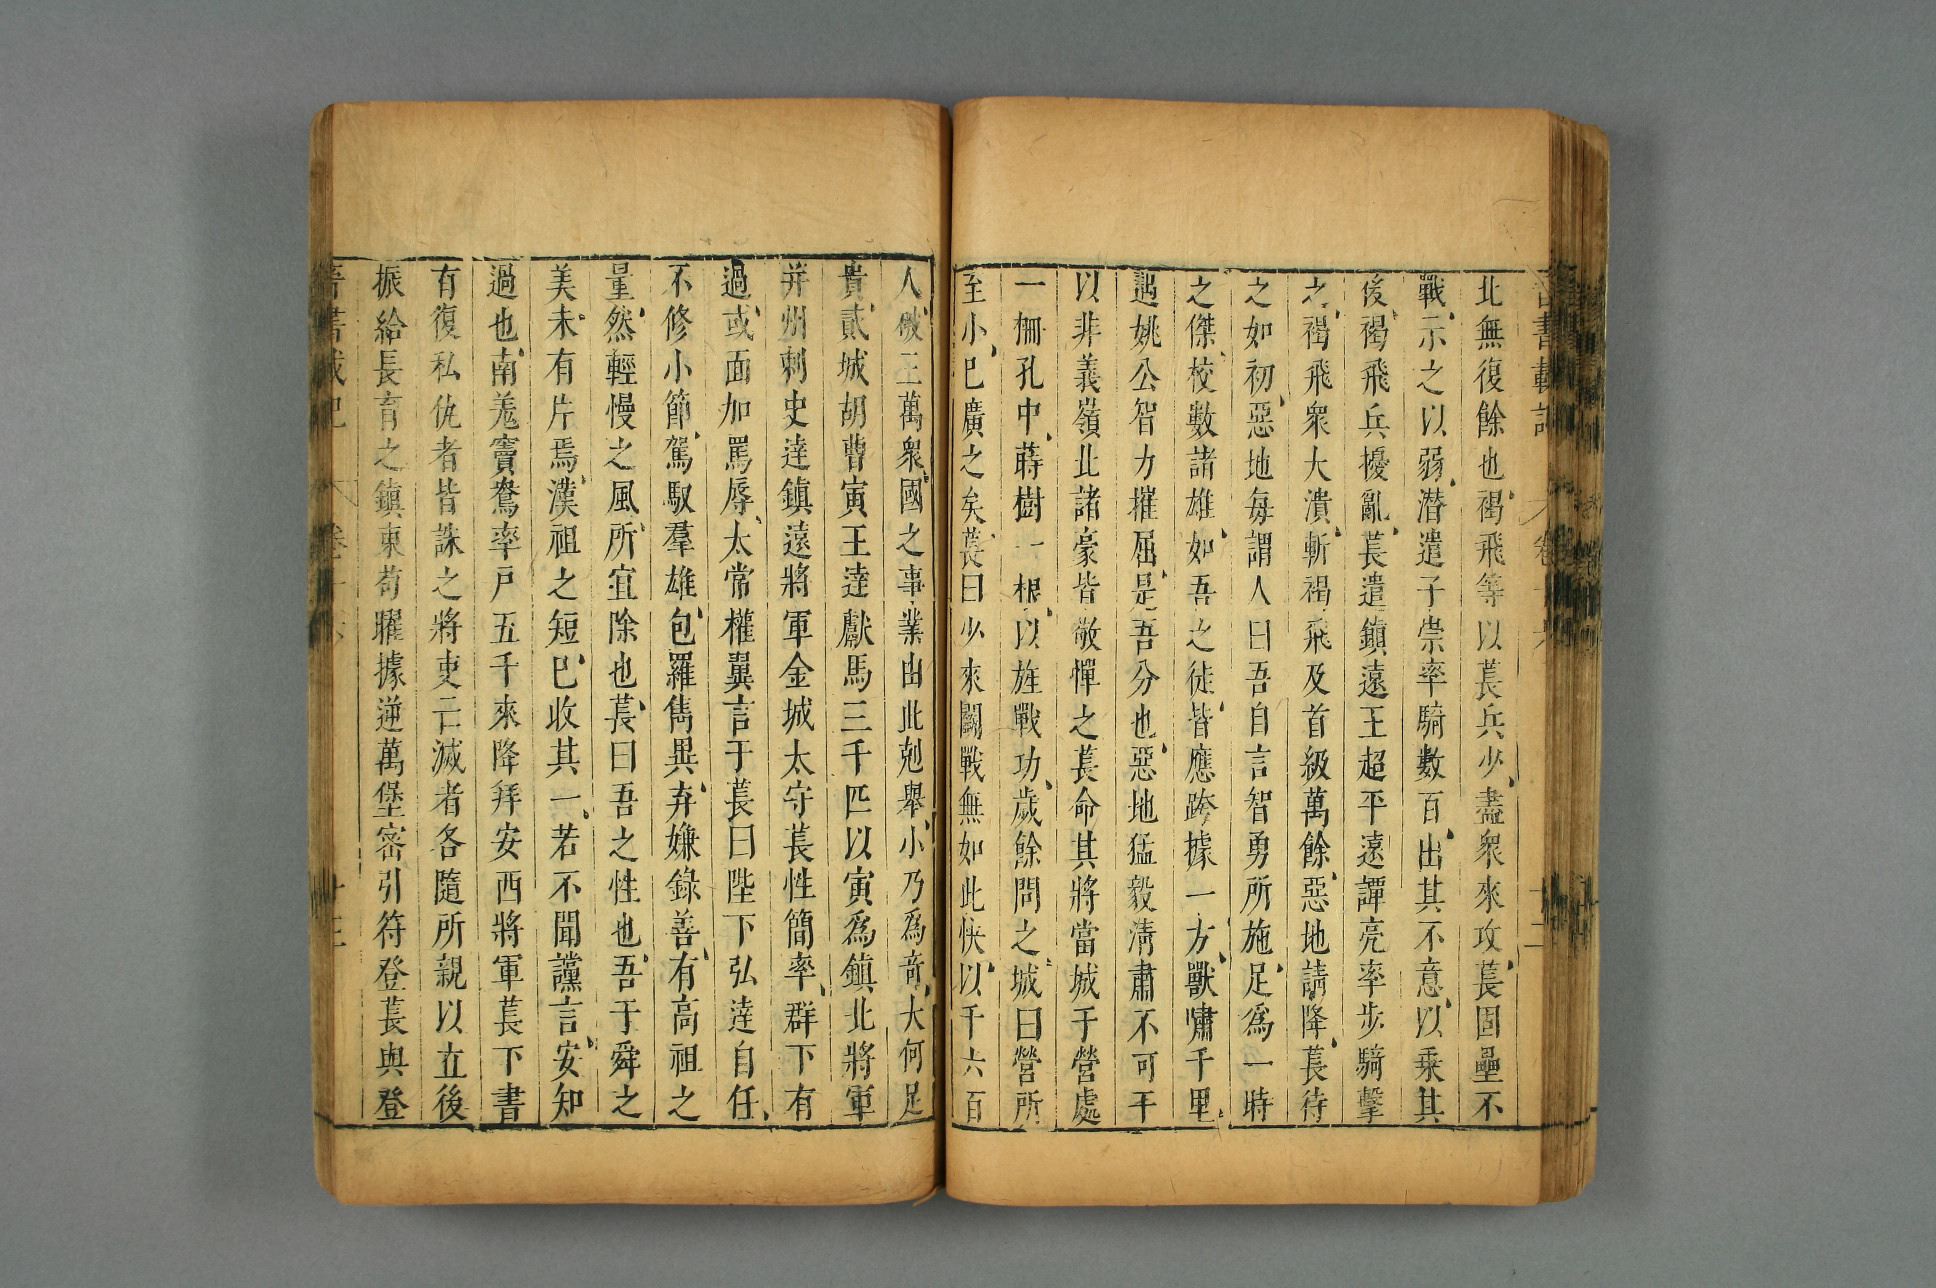 晉書載記 卷十六 十二
北無復餘也褐飛等以萇兵少盡衆來攻萇固壘不
戰示之以弱潜遣子崇率騎數百出其不意以乗其
後褐飛兵擾亂萇遣鎮遠王超平遠譚亮率步騎擊
之褐飛衆大潰斬褐飛及首級萬餘惡地請降萇待
之如初惡地每謂人曰吾自言智勇所施足爲一時
之傑校數諸雄如吾之徒皆應跨據一方獸嘯千里
遇姚公智力摧屈是吾分也惡地猛毅清肅不可干
以非義嶺北諸豪皆敬憚之萇命其將當城于營處
一栅孔中蒔樹一根以旌戰功歲餘問之城曰營所
至小已廣之矣萇曰少來鬭戰無如此快以千六百
人破三萬衆國之事業由此剋舉小乃爲竒大何足
貴貳城胡曹寅王達獻馬三千匹以寅爲鎮北將軍
并州刺史達鎮遠將軍金城太守萇性簡率群下有
過或面加罵辱太常權翼言于萇曰陛下弘達自任
不修小節駕馭羣雄包羅雋異弃嫌錄善有高祖之
量然輕慢之風所宜除也萇曰吾之性也吾于舜之
美未有片焉漢祖之短已收其一若不聞讜言安知
過也南羗竇鴦率戸五千來降拜安西將軍萇下書
有復私仇者皆誅之將吏亡滅者各隨所親以立後
振給長育之鎮東苟曜據逆萬堡密引符登萇與登
晉書載記 卷十六 十三